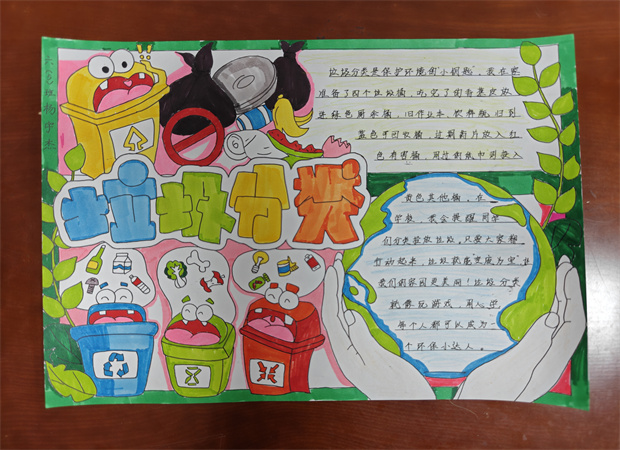 垃圾分类是保护环境的“小侧面”。我在家
准备了四个垃圾桶，吃完了的香蕉皮放
绿色厨余桶，旧作业本、饮料瓶归到
蓝色可回收桶，过期药片放入红
色有害桶，用过的纸巾则放入
黄色其他桶，在
学校，我会提醒同学
们分类投放垃圾。只要大家都
行动起来，垃圾就能变废为宝，让
我们的家园更美丽！垃圾分类
就像玩游戏，用心
每个人都可以成为一
个环保小达人。
垃圾分类